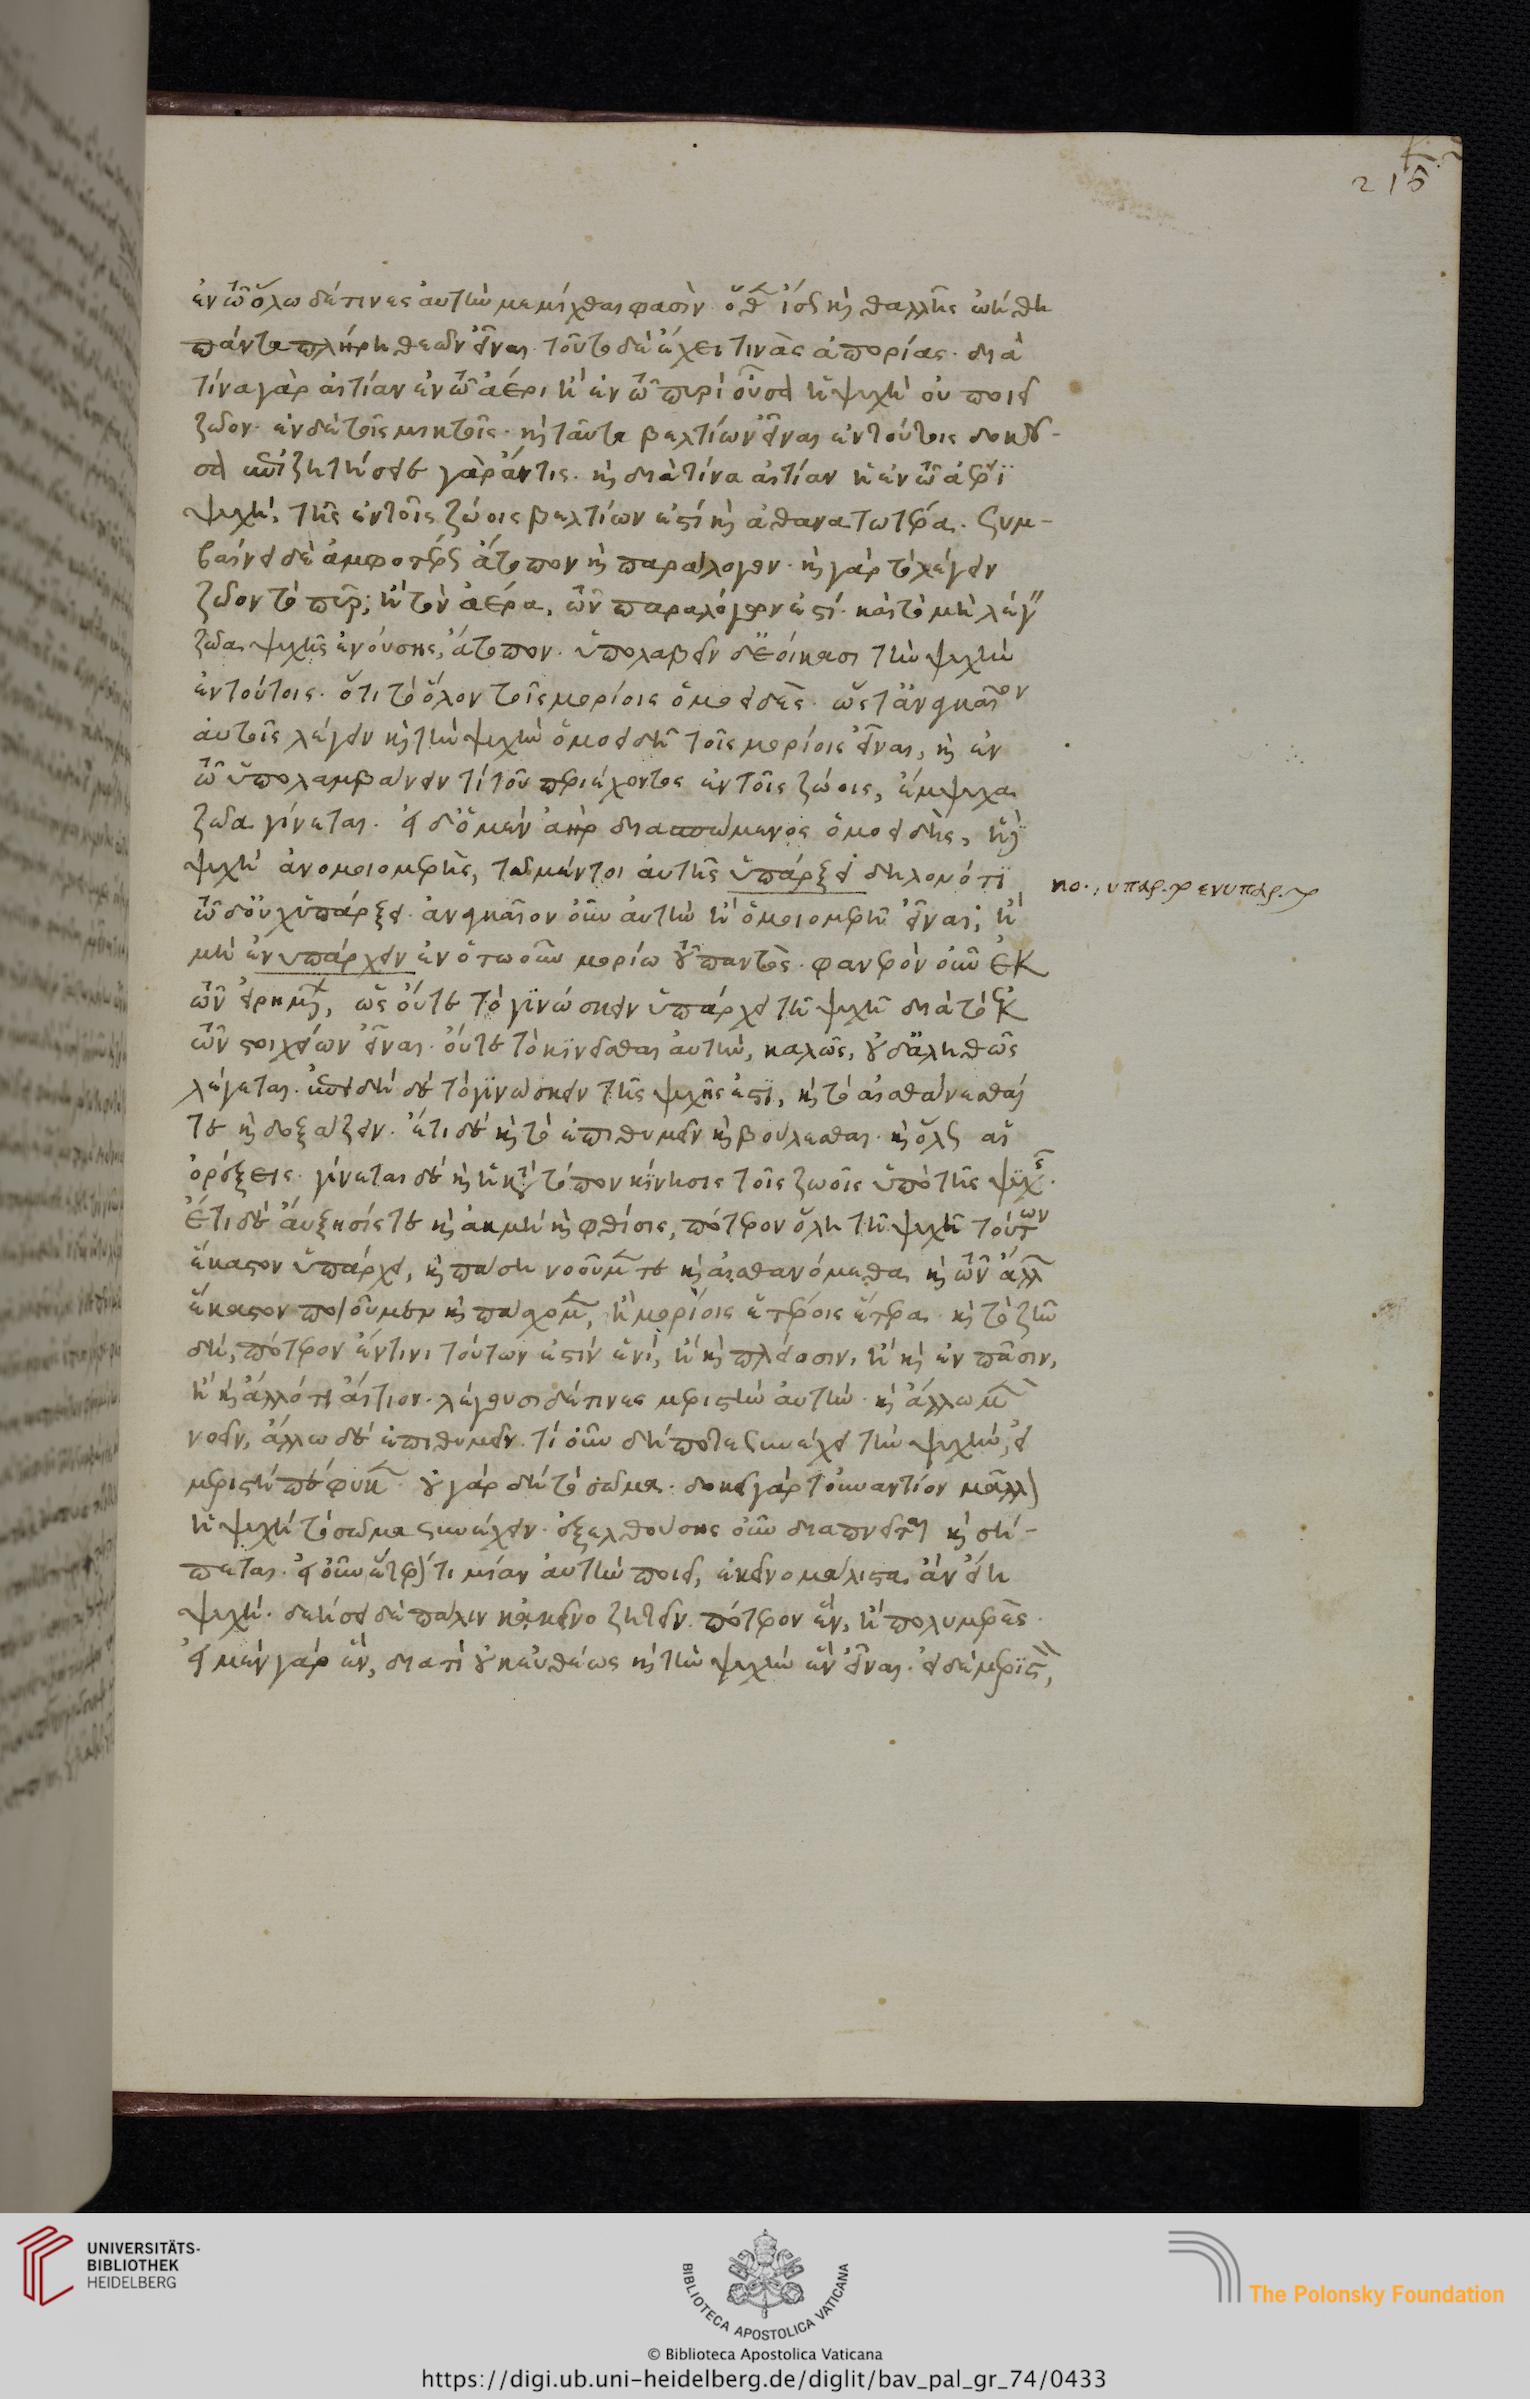 215
ἐν τῷ ὅλῳ δέ τινες αὐτὴν μεμίχθαι φασὶν· ὅθεν ἴσως καὶ θαλλῆς ὠήθη
πάντα πλήρη θεῶν εἶναι. τοῦτο δὲ ἔχει τινὰς ἀπορίας. διὰ
τίνα γὰρ αἰτίαν ἐν τῷ ἀέρι ἢ ἐν τῷ πυρὶ οὖσα ἡ ψυχὴ οὐ ποιεῖ
ζῷον. ἐν δὲ τοῖς μικτοῖς. καὶ ταῦτα βελτίων εἶναι ἐν τούτοις δοκοῦ-
σα ἐπιζητήσειε γὰρ ἄν τις. καὶ διὰ τίνα αἰτίαν ἡ ἐν τῷ ἀέρι
ψυχὴ, τῆς ἐν τοῖς ζώοις βελτίων ἐστὶ καὶ ἀθανατωτέρα. συμ-
βαίνει δὲ ἀμφοτέρως ἄτοπον καὶ παράλογον. καὶ γὰρ τὸ λέγειν
ζῷον τὸ πῦρ, ἢ τὸν ἀέρα, τῶν παραλόγων ἐστί. καὶ τὸ μὴ λέγειν
ζῷα ψυχῆς ἐνούσης, ἄτοπον. ὑπολαβεῖν δ' ἐοίκασι τὴν ψυχὴν
ἐν τούτοις. ὅτι τὸ ὅλον τοῖς μορίοις ὁμοειδές. ὥστ' ἀναγκαῖον
αὐτοῖς λέγειν καὶ τὴν ψυχὴν ὁμοειδῆ τοῖς μορίοις εἶναι, καὶ ἐν
τῷ ὑπολαμβάνειν τί τοῦ περιέχοντος ἐν τοῖς ζώοις, ἔμψυχα
ζῷα γίνεται. εἰ δ' ὁ μὲν ἀὴρ διασπώμενος ὁμοειδής, ἡ δὲ
ψυχὴ ἀνομοιομερής, τὸ μέντοι αὐτῆς ὑπάρξει δηλονότι,
τῷ δ' οὐχ ὑπάρξει. ἀναγκαῖον οὖν αὐτὴν ἢ ὁμοιομερῆ εἶναι, ἢ
μὴ ἐνυπάρχειν ἐν ὁτωοῦν μορίω τοῦ παντός. φανερὸν οὖν ἐκ
τῶν εἰρημένων, ὡς οὔτε τὸ γινώσκειν ὑπάρχει τῇ ψυχῇ διὰ τὸ ἐκ
τῶν στοιχείων εἶναι. οὔτε τὸ κινεῖσθαι αὐτὴν, καλῶς, οὐδ' ἀληθῶς
λέγεται. ἐπειδὴ δὲ τὸ γινώσκειν τῆς ψυχῆς ἐστι, καὶ τὸ αἰσθάνεσθαί
τε καὶ δοξάζειν. ἔτι δὲ καὶ τὸ ἐπιθυμεῖν καὶ βούλεσθαι. καὶ ὅλως αἱ
ὀρέξεις. γίνεται δὲ καὶ ἡ κατὰ τόπον κίνησις τοῖς ζώοις ὑπὸ τῆς ψυχῆς.
ἔτι δὲ αὔξησίς τε καὶ ἀκμὴ καὶ φθίσις, πότερον ὅλη τῇ ψυχῇ τούτων
ἕκαστον ὑπάρχει, καὶ πάση νοοῦμέν τε καὶ αἰσθανόμεθα καὶ τῶν ἄλλων
ἕκαστον ποιοῦμεν καὶ πάσχομεν, ἢ μορίοις ἑτέροις ἕτερα. καὶ τὸ ζῆν
δή, πότερον ἔν τινι τούτων ἐστὶν ἑνί, ἢ καὶ πλείοσιν, ἢ καὶ ἐν πᾶσιν,
ἢ καὶ ἄλλό τι αἴτιον. λέγουσι δέ τινες μεριστὴν αὐτήν. καὶ ἄλλω μὲν
νοεῖν, ἄλλω δὲ ἐπιθυμεῖν. τί οὖν δήποτε συνέχει τὴν ψυχὴν, εἰ
μεριστὴ πέφυκεν. οὐ γὰρ δὴ τὸ σῶμα. δοκεῖ γὰρ τοὐναντίον μᾶλλον
ἡ ψυχὴ τὸ σῶμα συνέχειν. ἐξελθούσης οὖν διαπνεῖται καὶ σή-
πεται. εἰ οὖν ἕτερόν τι μίαν αὐτὴν ποιεῖ, ἐκεῖνο μάλιστα ἂν εἴη
ψυχή. δεήσει δὲ πάλιν κἀκεῖνο ζητεῖν. πότερον ἓν, ἢ πολυμερές.
εἰ μὲν γὰρ ἓν, διατί οὐκ εὐθέως καὶ τὴν ψυχὴν ἓν εἶναι. εἰ δὲ μεριστὸν,
no., υπαρ. ενυπαρ.
UNIVERSITÄTS-
BIBLIOTHEK
HEIDELBERG
BIBLIOTECA APOSTOLICA VATICANA
The Polonsky Foundation
© Biblioteca Apostolica Vaticana
https://digi.ub.uni-heidelberg.de/diglit/bav_pal_gr_74/0433